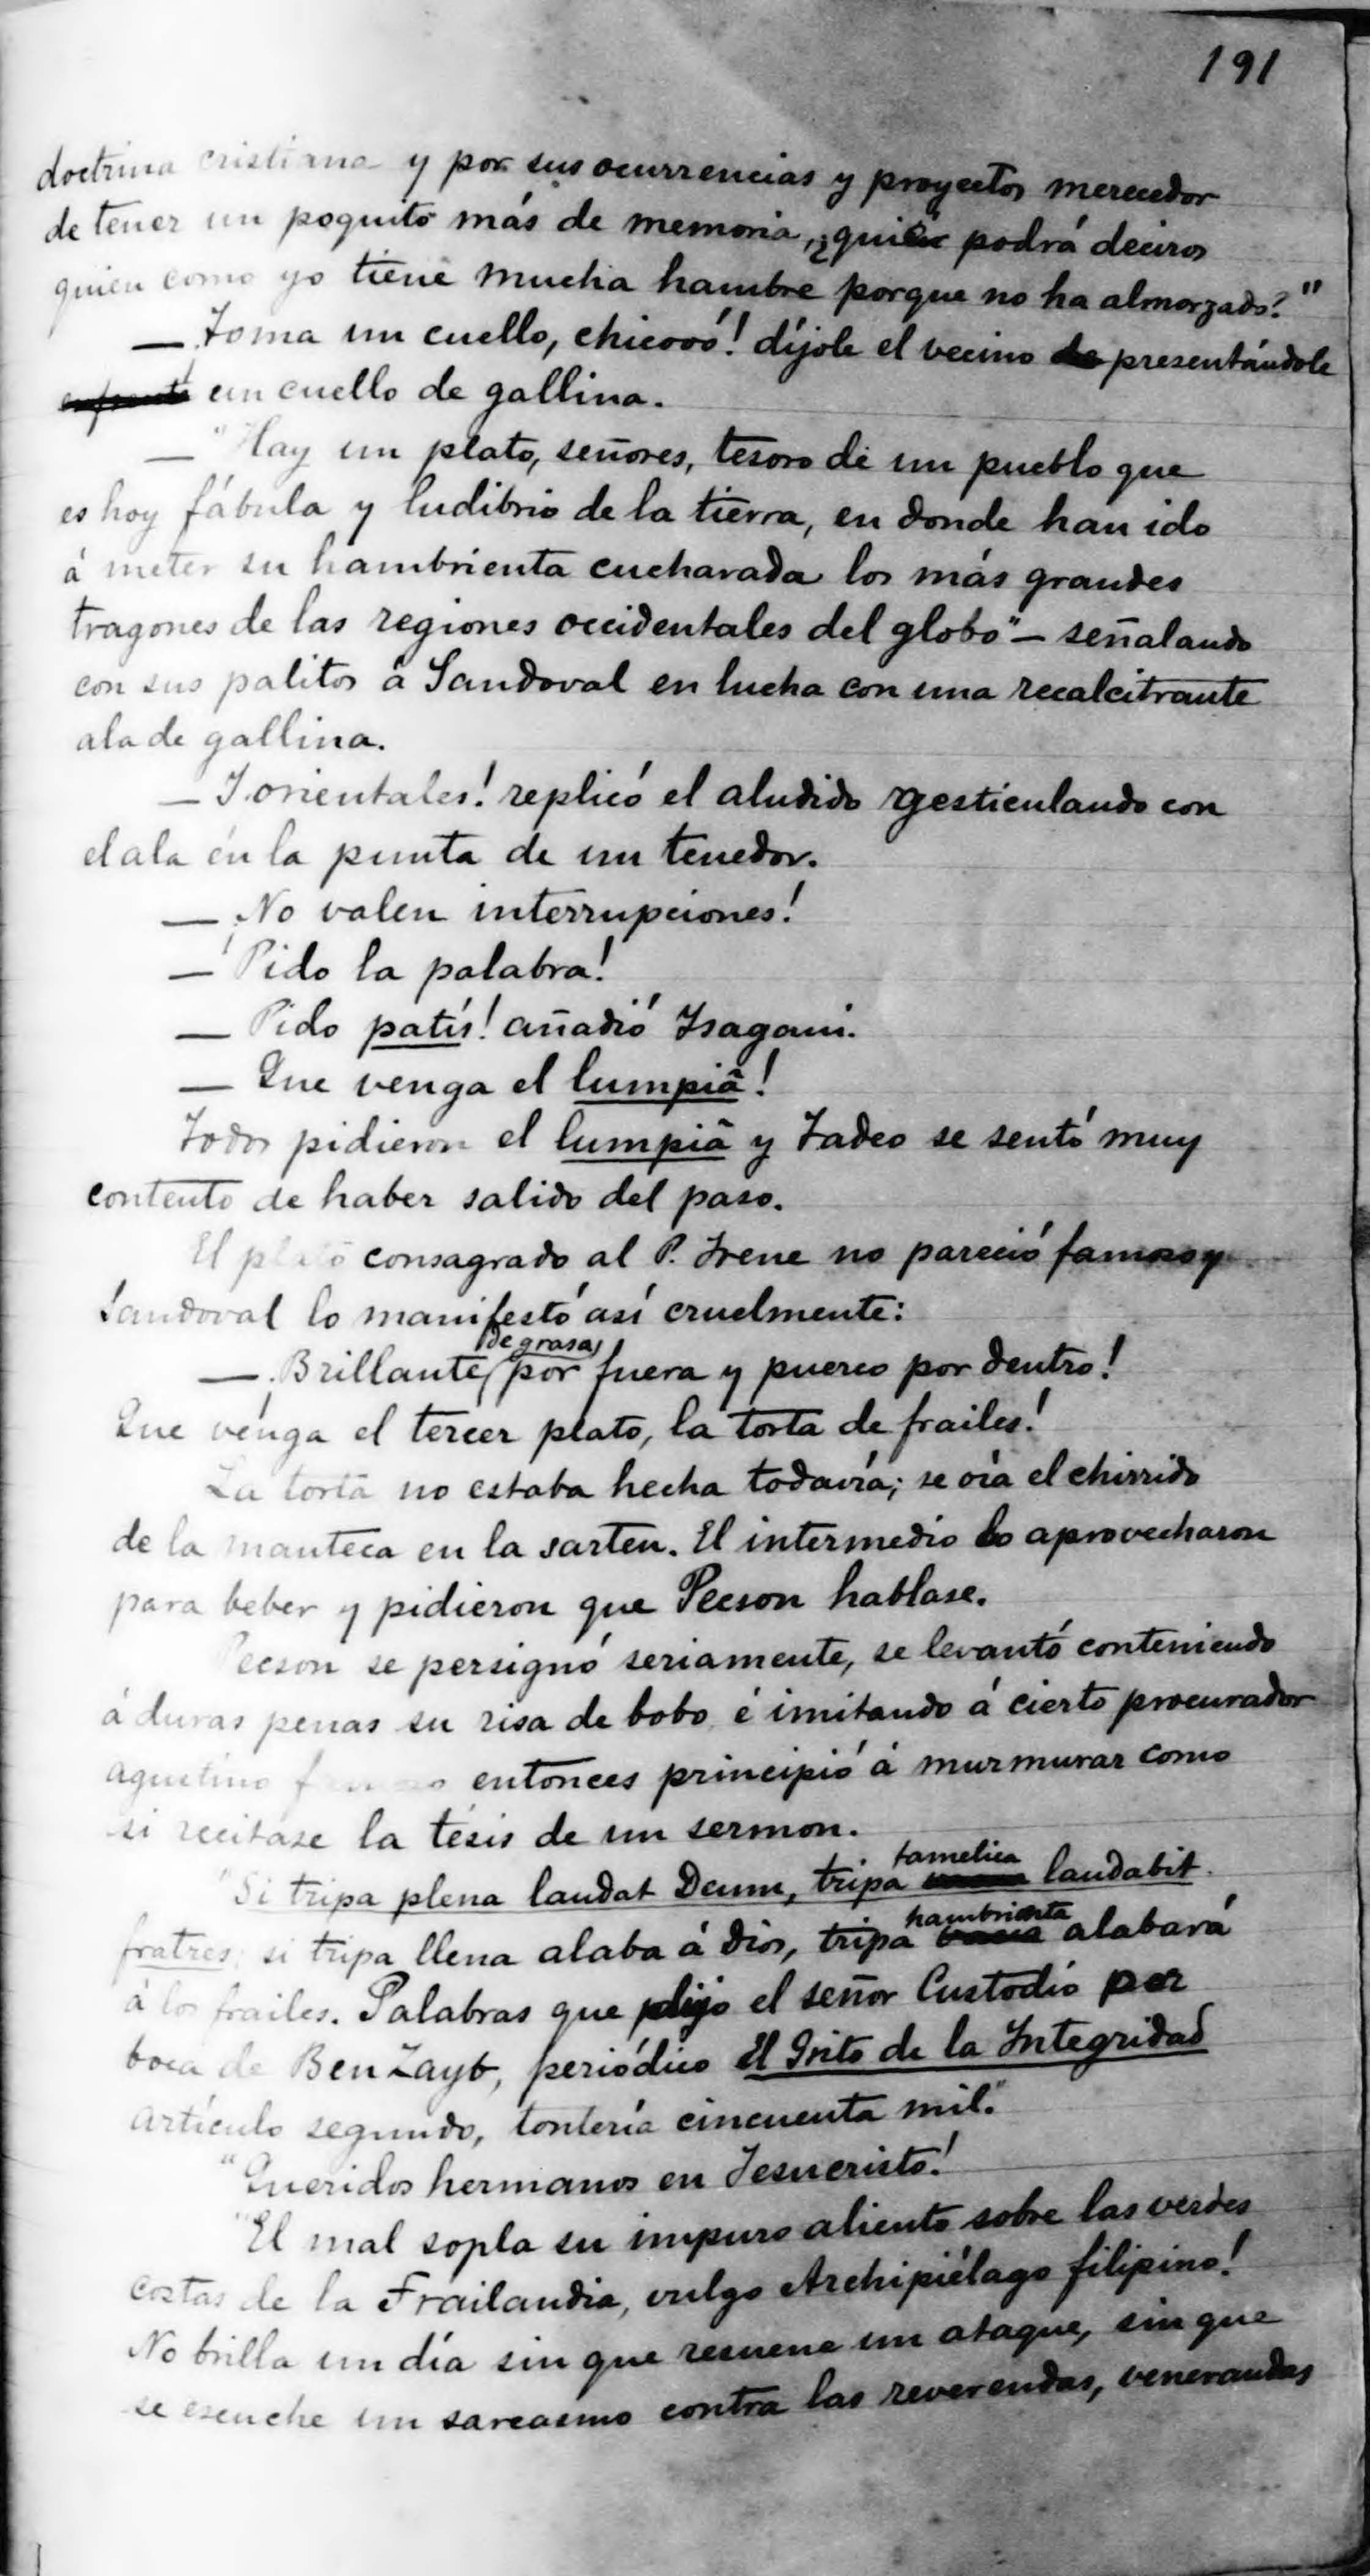 191
doctrina cristiana y por sus ocurrencias y proyectos merecedor
de tener un poquito más de memoria, ¿quién podrá deciros
quien como yo tiene mucha hambre porque no ha almorzado?"
— Toma un cuello, chicooó! díjole el vecino de presentándole
enfrente un cuello de gallina.
— "Hay un plato, señores, tesoro de un pueblo que
es hoy fábula y ludibrio de la tierra, en donde han ido
á meter su hambrienta cucharada los más grandes
tragones de las regiones occidentales del globo" — señalando
con sus palitos á Sandoval en lucha con una recalcitrante
ala de gallina.
— Y orientales! replicó el aludido gesticulando con
el ala en la punta de un tenedor.
— No valen interrupciones!
— Pido la palabra!
— Pido patís! añadió Isagani.
— Que venga el lumpiâ!
Todos pidieron el lumpiâ y Tadeo se sentó muy
contento de haber salido del paso.
El plato consagrado al P. Irene no pareció famoso y
Sandoval lo manifestó así cruelmente:
de grasa
— ¡Brillante por fuera y puerco por dentro!
Que venga el tercer plato, la torta de frailes!
La torta no estaba hecha todavía; se oía el chirrido
de la manteca en la sarten. El intermedio lo aprovecharon
para beber y pidieron que Pecson hablase.
Pecson se persignó seriamente, se levantó conteniendo
á duras penas su risa de bobo é imitando á cierto procurador
agustino famoso entonces principió á murmurar como
si recitase la tésis de un sermon.
famelica
"Si tripa plena laudat Deum, tripa laudabit
hambrienta
fratres; si tripa llena alaba á Dios, tripa vacía alabará
á los frailes. Palabras que dijo el señor Custodio por
boca de Ben Zayb, periódico El Grito de la Integridad
artículo segundo, tontería cincuenta mil."
"Queridos hermanos en Jesucristo!
"El mal sopla su impuro aliento sobre las verdes
costas de la Frailandia, vulgo Archipiélago filipino!
No brilla un día sin que resuene un ataque, sin que
se escuche un sarcasmo contra las reverendas, venerandas